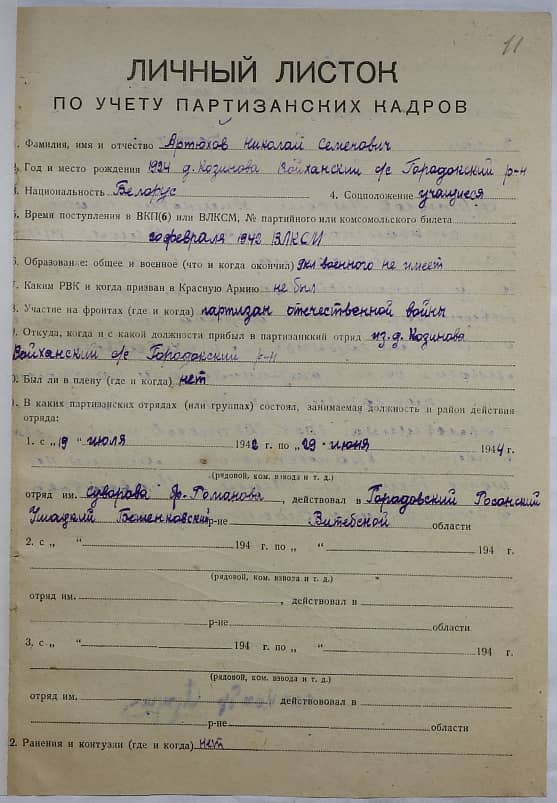 11
ЛИЧНЫЙ ЛИСТОК
ПО УЧЕТУ ПАРТИЗАНСКИХ КАДРОВ
. Фамилия, имя и отчество Артюхов Николай Семенович
. Год и место рождения 1924 д. Козинова Войханский с/с Городокский р-н
3. Национальность Белорус 4. Соцположение учащиеся
5. Время поступления в ВКП(б) или ВЛКСМ, № партийного или комсомольского билета
20 февраля 1942 ВЛКСМ
6. Образование: общее и военное (что и когда окончил) военного не имеет
7. Каким РВК и когда призван в Красную Армию не был
8. Участие на фронтах (где и когда) партизан отечественной войны
9. Откуда, когда и с какой должности прибыл в партизанкий отряд из. д. Козинова
Войханский с/с Городокский р-н
0. Был ли в плену (где и когда) нет
. В каких партизанских отрядах (или группах) состоял, занимаемая должность и район действия
отряда:
1. с „19 “ июля 1942 г. по „ 29 “ июня 1944 г.
(рядовой, ком. взвода и т. д.)
отряд им. Суворава бр. Романова, действовал в Городовский Росонский
Ушацкий р-не Витебской области
2. с „ “ 194 г. по „ “ 194 г.
(рядовой, ком. взвода и т. д.)
отряд им. , действовал в
р-не области
3, с „ “ 194 г. по „ “ 194 г.
(рядовой, ком. взвода и т. д.)
отряд им. действововал в
р-не области
2. Ранения и контузии (где и когда) нет